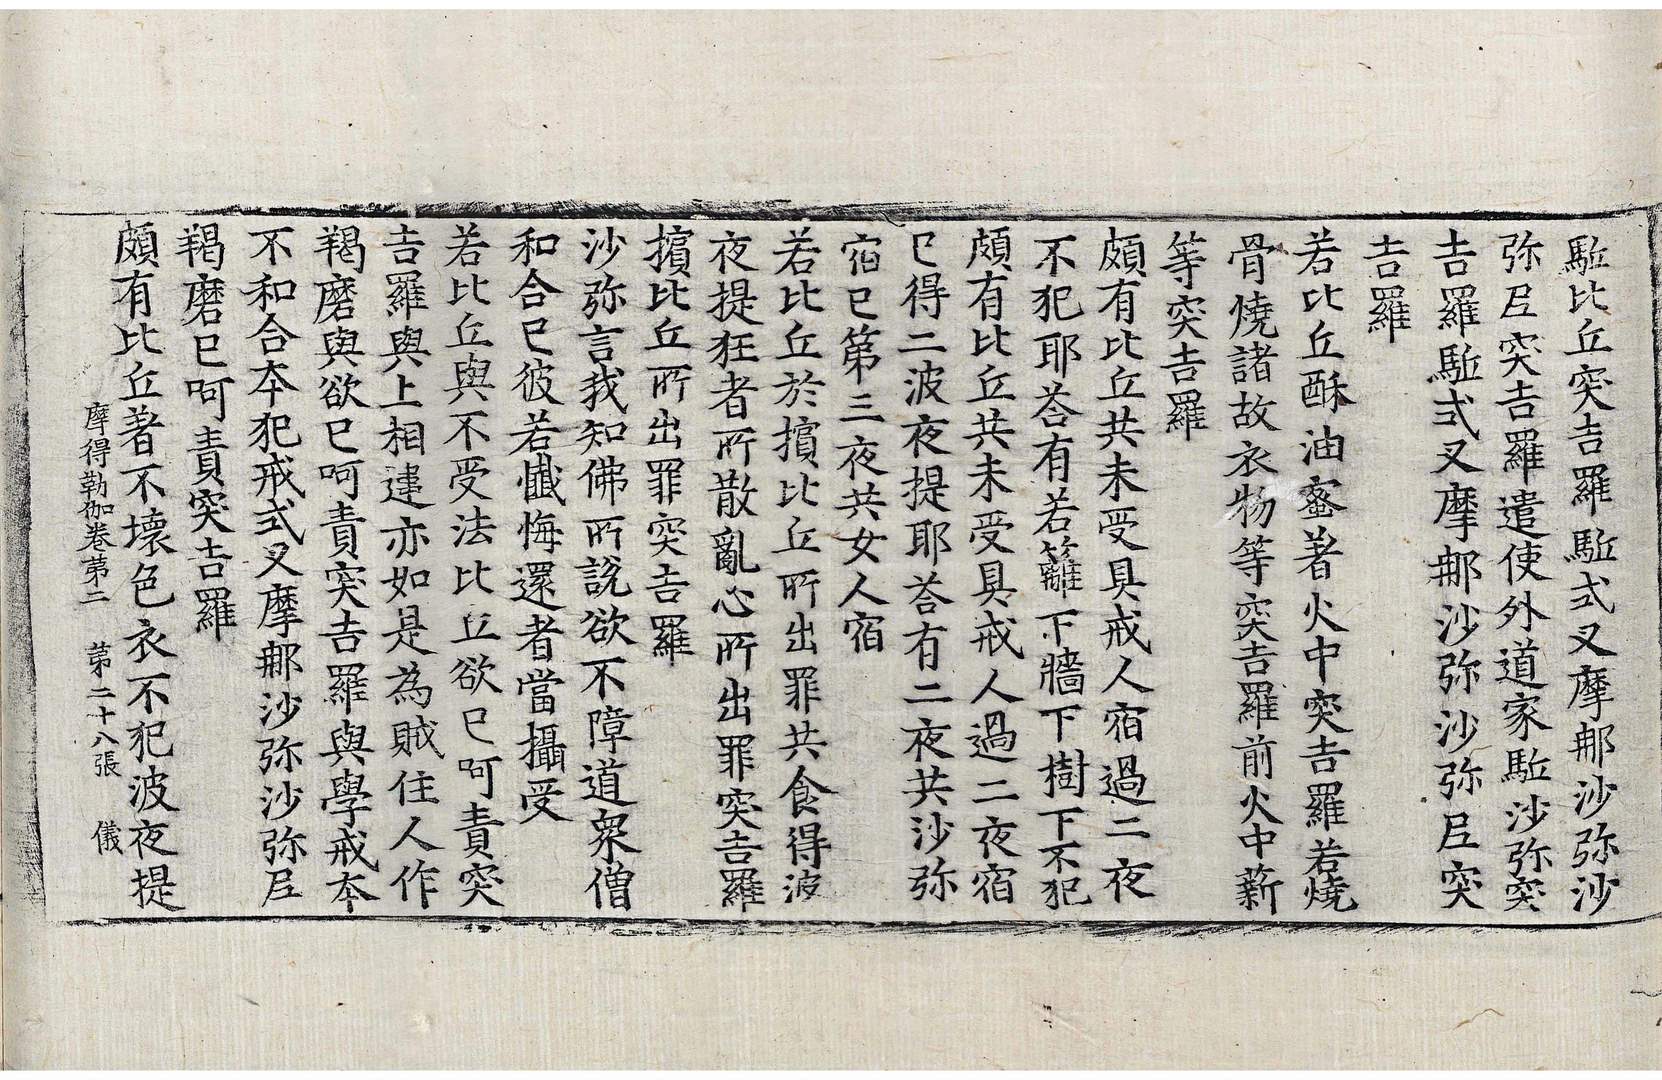 駈比丘突吉羅駈式叉摩郍沙弥沙
弥𡰱突吉羅遣使外道家駈沙弥突
吉羅駈式叉摩郍沙弥沙弥𡰱突
吉羅
若比丘酥油蜜著火中突吉羅若燒
骨燒諸故衣物等突吉羅前火中薪
等突吉羅
頗有比丘共未受具戒人宿過二夜
不犯耶荅有若籬下牆下樹下不犯
頗有比丘共未受具戒人過二夜宿
已得二波夜提耶荅有二夜共沙弥
宿已第三夜共女人宿
若比丘於擯比丘所出罪共食得波
夜提狂者所散亂心所出罪突吉羅
擯比丘所出罪突吉羅
沙弥言我知佛所說欲不障道衆僧
和合已彼若懺悔還者當攝受
若比丘與不受法比丘欲已呵責突
吉羅與上相違亦如是為賊住人作
羯磨與欲已呵責突吉羅與學戒本
不和合本犯戒式叉摩郍沙弥沙弥𡰱
羯磨已呵責突吉羅
頗有比丘著不壞色衣不犯波夜提
摩得勒伽卷第二 第二十八張 儀